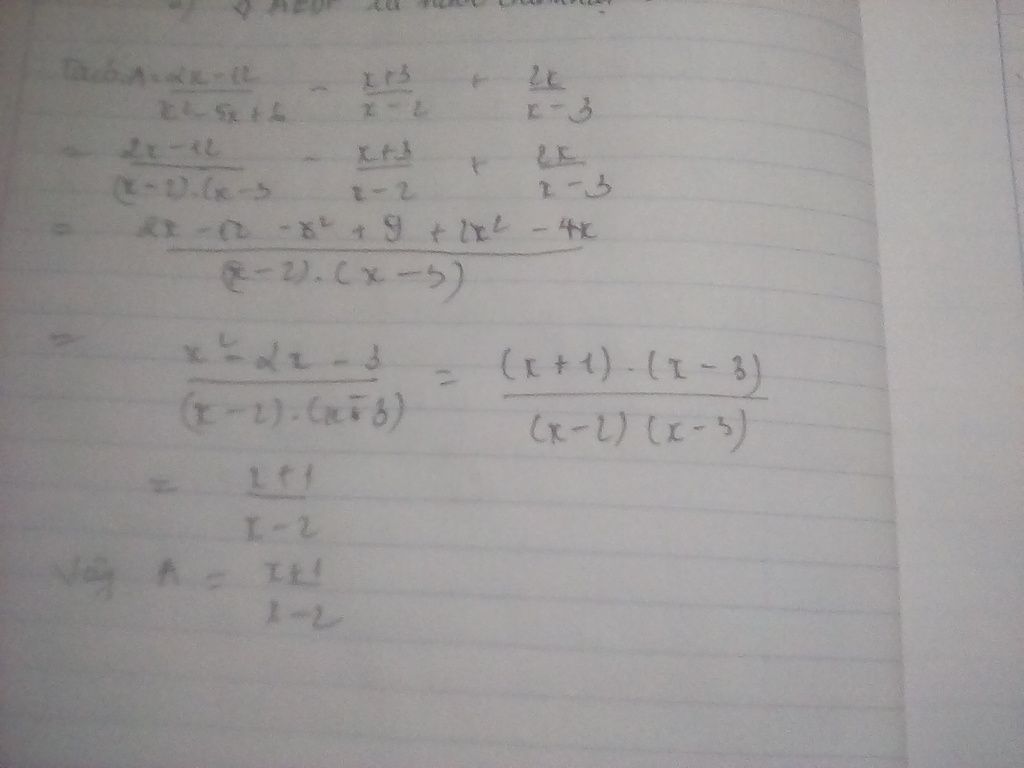 Ta có A = \frac{2x-12}{x^2-5x+6} - \frac{x+3}{x-2} + \frac{2x}{x-3}
= \frac{2x-12}{(x-2).(x-3} - \frac{x+3}{x-2} + \frac{2x}{x-3}
= \frac{2x-12-x^2+9+2x^2-4x}{(x-2).(x-3)}
= \frac{x^2-2x-3}{(x-2).(x-3)} = \frac{(x+1).(x-3)}{(x-2)(x-3)}
= \frac{x+1}{x-2}
Vậy A = \frac{x+1}{x-2}